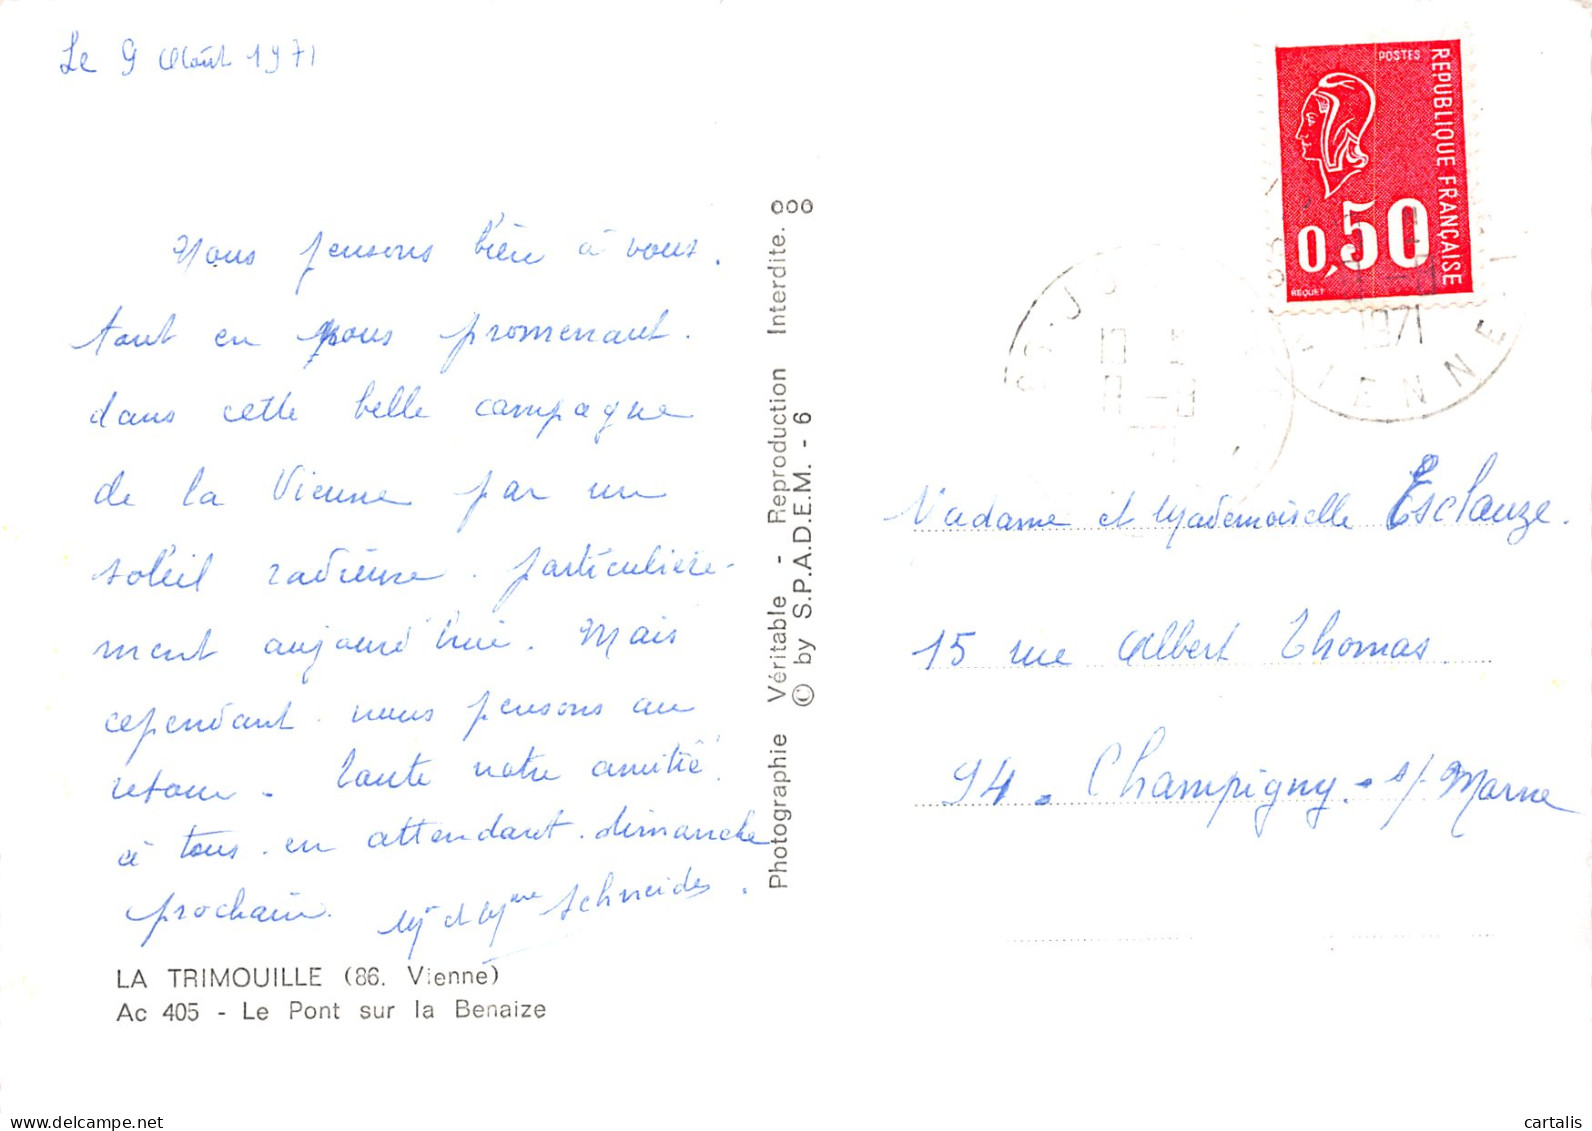 Le 9 Août 1971
Nous pensons bien à vous.
tout en nous promenant.
dans cette belle campagne
de la Vienne par un
soleil radieuse. particulière-
ment aujourd'hui. Mais
cependant nous pensons au
retour. Toute notre amitié
à tous. en attendant. dimanche
prochain. Mr et Mme Schneider.
LA TRIMOUILLE (86. Vienne)
Ac 405 - Le Pont sur la Benaize
Photographie Véritable - Reproduction Interdite.
© by S.P.A.D.E.M. - 6
POSTES
REPUBLIQUE FRANÇAISE
0,50
BEQUET
1971
VIENNE
Madame et Mademoiselle Esclauze.
15 rue Albert Thomas.
94. Champigny. s/ Marne
www.delcampe.net
cartalis